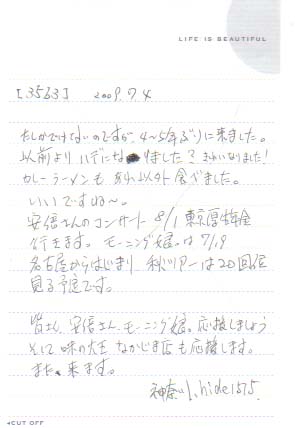 LIFE IS BEAUTIFUL
[3563] 2009.7.4
たしかではないのですが、4〜5年ぶりに来ました。
以前よりハデになりました？きれいになりました！
カレーラーメンも 食べました。
いいですね〜。
安倍さんのコンサート 8/1 東京厚生年金
行きます。モーニング娘。は7/19
名古屋からはじまり 秋ツアーは20回位
見る予定です。
皆さん、安倍さん、モーニング娘。応援しましょう
そして味の大王 なかじま店も応援します。
また、来ます。
神奈川、hide1575
◂CUT OFF